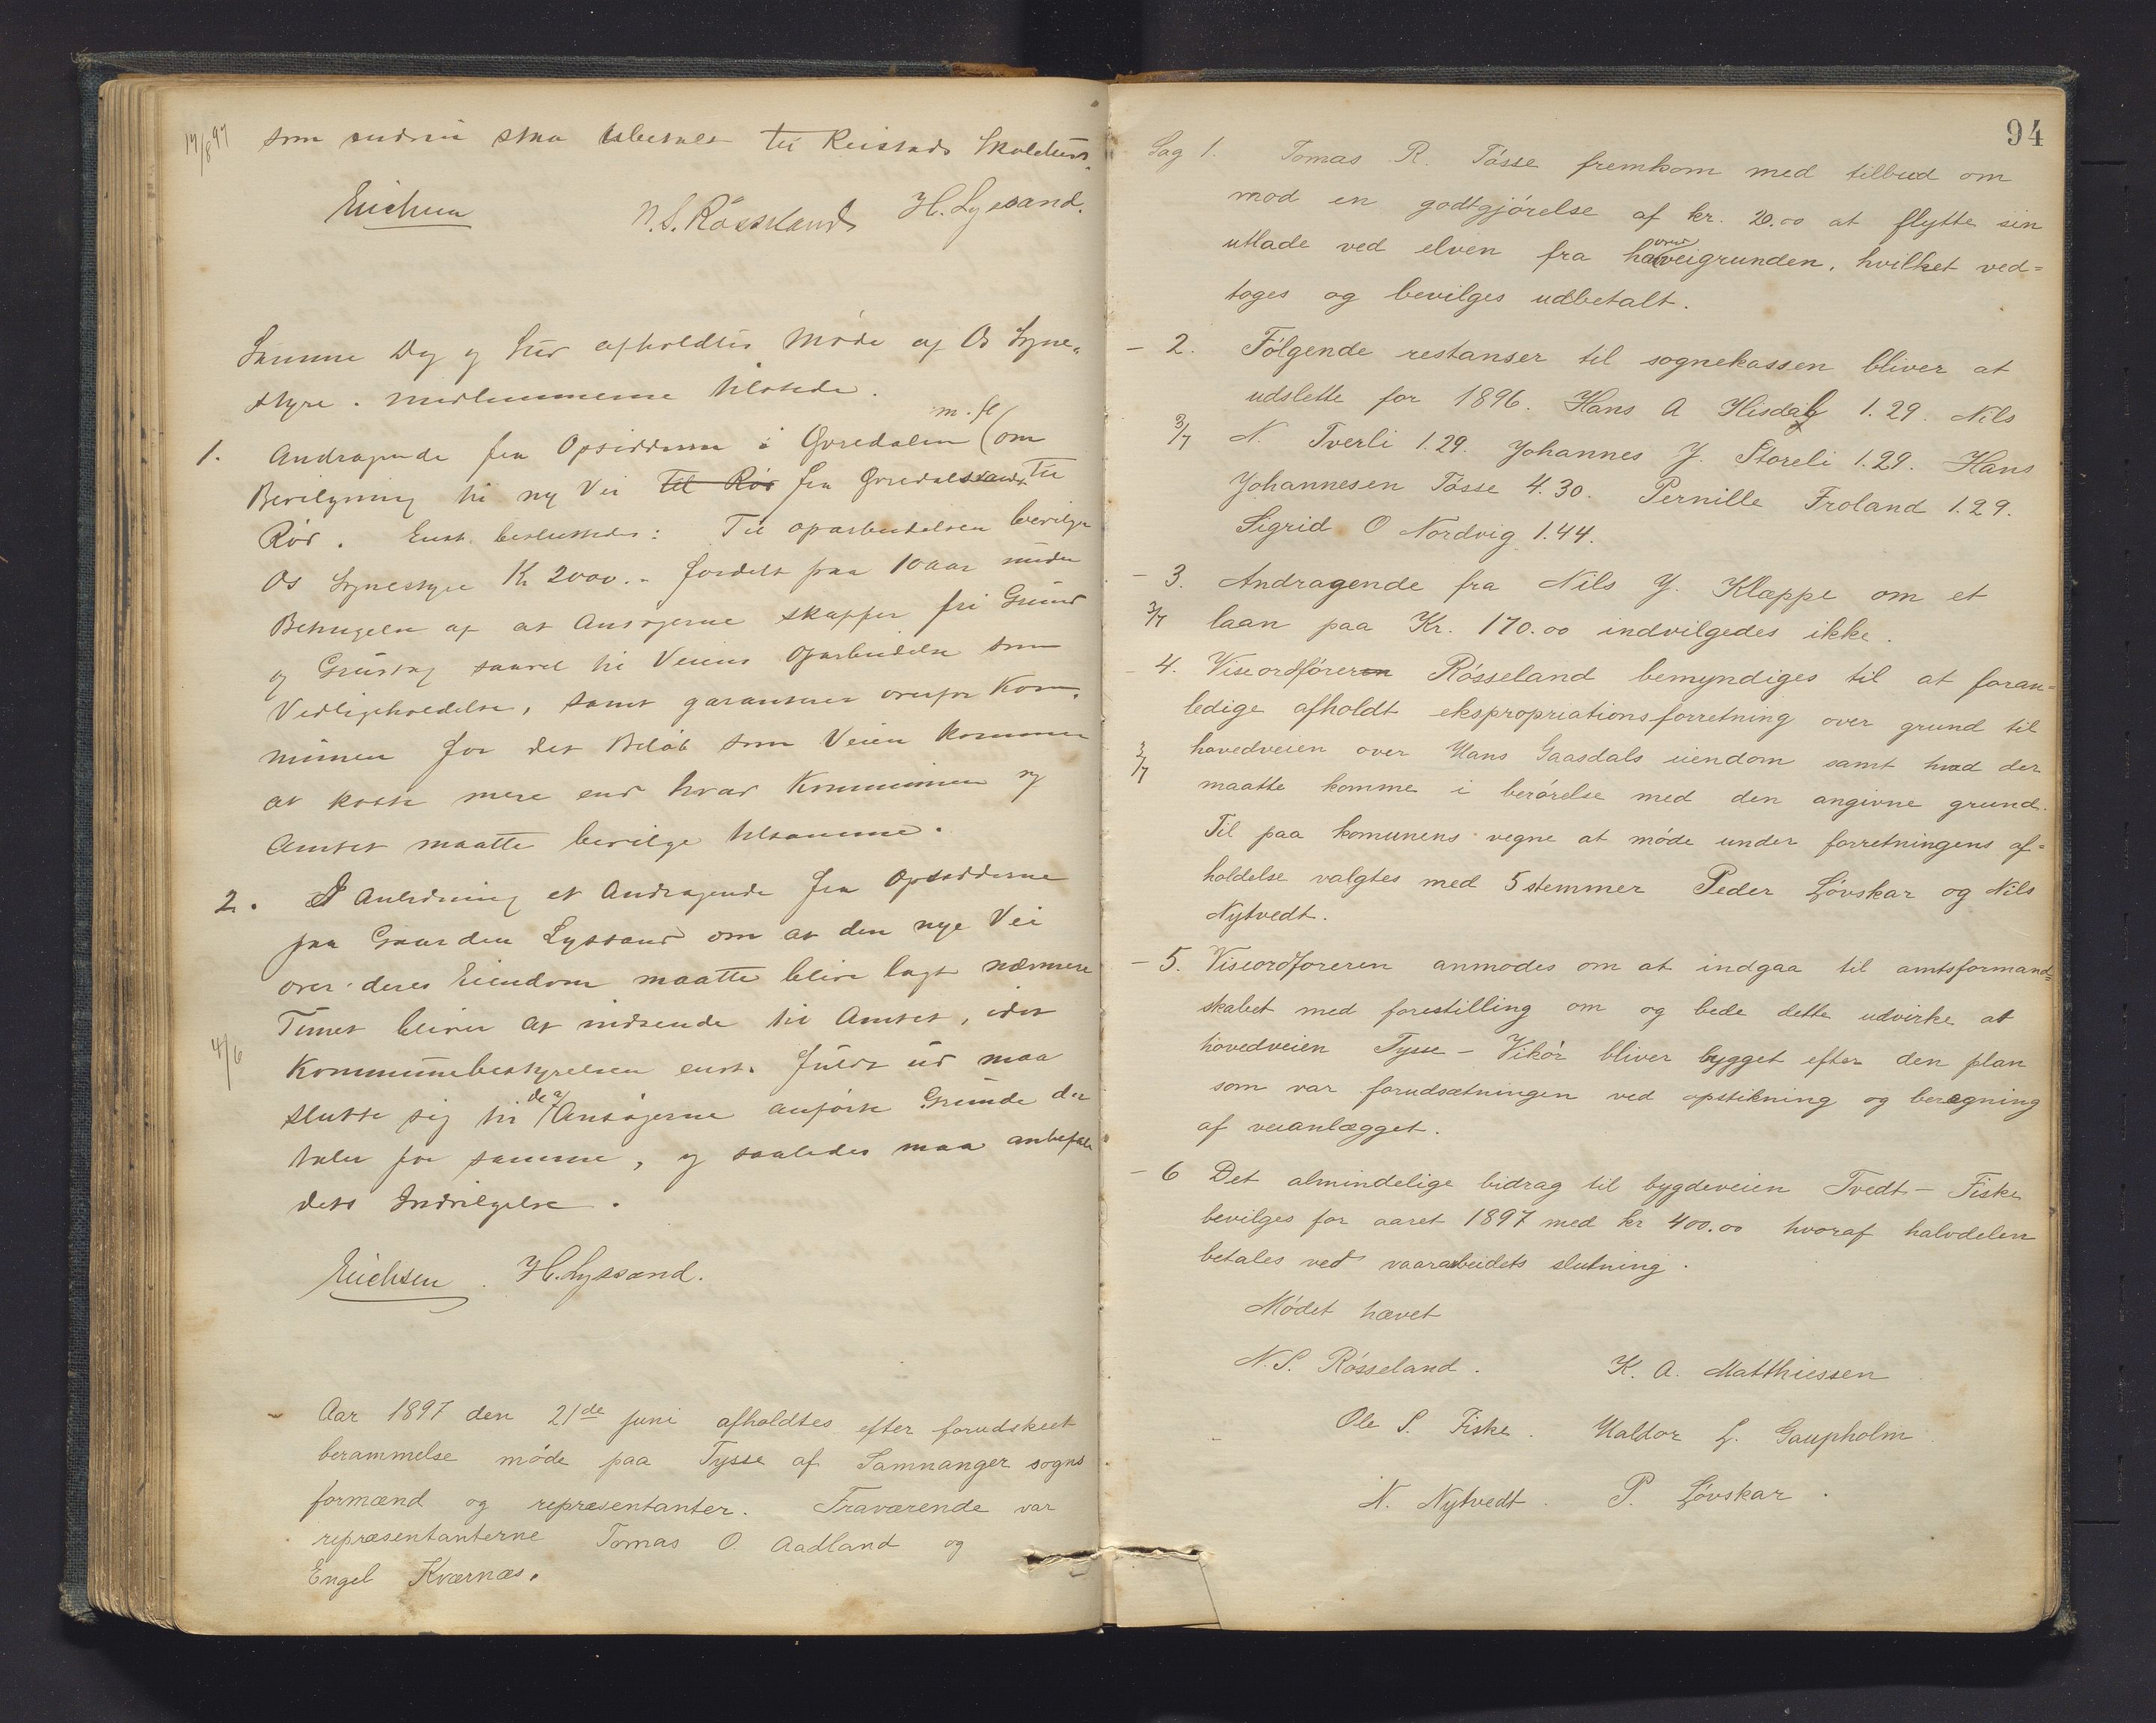 14/8 97
som endnu skal ubetales til Reistads Skolekreds.
Erichsen N.S. Røsseland H. Lyssand.
Samme Dag og Sted afholdtes Møde af Os Sogne-
styre. Medlemmerne tilstede.
1. Andragende fra Opsidderne i Øvredalen m. fl (om
Bevilgning til ny Vei til Rød fra Øvredalssand til
Rød. Enst. besluttedes: Til oparbeidelsen bevilger
Os Sognestyre Kr 2000.- fordelt paa 10 aar under
Betingelse af at Ansøgerne skaffer fri Grund
og Grustag saavel til Veiens Oparbeidelse som
Vedligeholdelse, samt garanterer overfor Kom-
munen for det Beløb som Veien kommer
at koste mere end hvad Kommunen og
Amtet maatte bevilge tilsamme.
2. I Anledning et Andragende fra Opsidderne
paa Gaarden Lyssand om at den nye Vei
over deres Eiendom maatte blive lagt nærmere
Tunet bliver at indsende til Amtet, idet
4/6
Kommunebestyrelsen enst. fuldt ud maa
slutte sig til de af Ansøgerne anførte Grunde der
taler for samme, og saaledes maa anbefale
dets Indvilgelse.
Erichsen. H. Lyssand.
Aar 1897 den 21de Juni afholdtes efter forudskeet
berammelse møde paa Tysse af Samnanger sogns
formænd og repræsentanter. Fraværende var
repræsentanterne Tomas O. Aadland og
Engel Kværnæs.
94
Sag 1. Tomas R. Tøsse fremkom med tilbud om
mod en godtgjørelse af kr. 20.00 at flytte sin
utlade ved elven fra hovedveigrunden, hvilket ved=
toges og bevilges udbetalt.
- 2. Følgende restanser til sognekassen bliver at
udslette for 1896. Hans A Hisdal 1.29. Nils
3/7 N. Tverli 1.29. Johannes J. Storeli 1.29. Hans
Johannesen Tøsse 4.30. Pernille Froland 1.29.
Sigrid O Nordvig 1.44.
- 3. Andragende fra Nils J. Klæppe om et
3/7 laan paa Kr. 170.00 indvilgedes ikke.
- 4. Viseordføreren Røsseland bemyndiges til at foran=
ledige afholdt ekspropriationsforretning over grund til
3/7 hovedveien over Hans Gaasdals eiendom samt hvad der
maatte komme i berørelse med den angivne grund.
Til paa komunens vegne at møde under forretningens af=
holdelse valgtes med 5 stemmer Peder Løvskar og Nils
Nytvedt.
- 5. Viseordføreren anmodes om at indgaa til amtsformand=
skabet med forestilling om og bede dette udvirke at
hovedveien Tysse - Vikør bliver bygget efter den plan
som var forudsætningen ved opstikning og beregning
af veianlægget.
- 6 Det almindelige bidrag til bygdeveien Tvedt - Fiske
bevilges for aaret 1897 med kr 400.00 hvoraf halvdelen
betales ved vaararbeidets slutning.
Mødet hævet
N.S. Røsseland. K. A. Matthiessen
Ole S. Fiske. Haldor L. Gaupholm
N. Nytvedt. P. Løvskar.